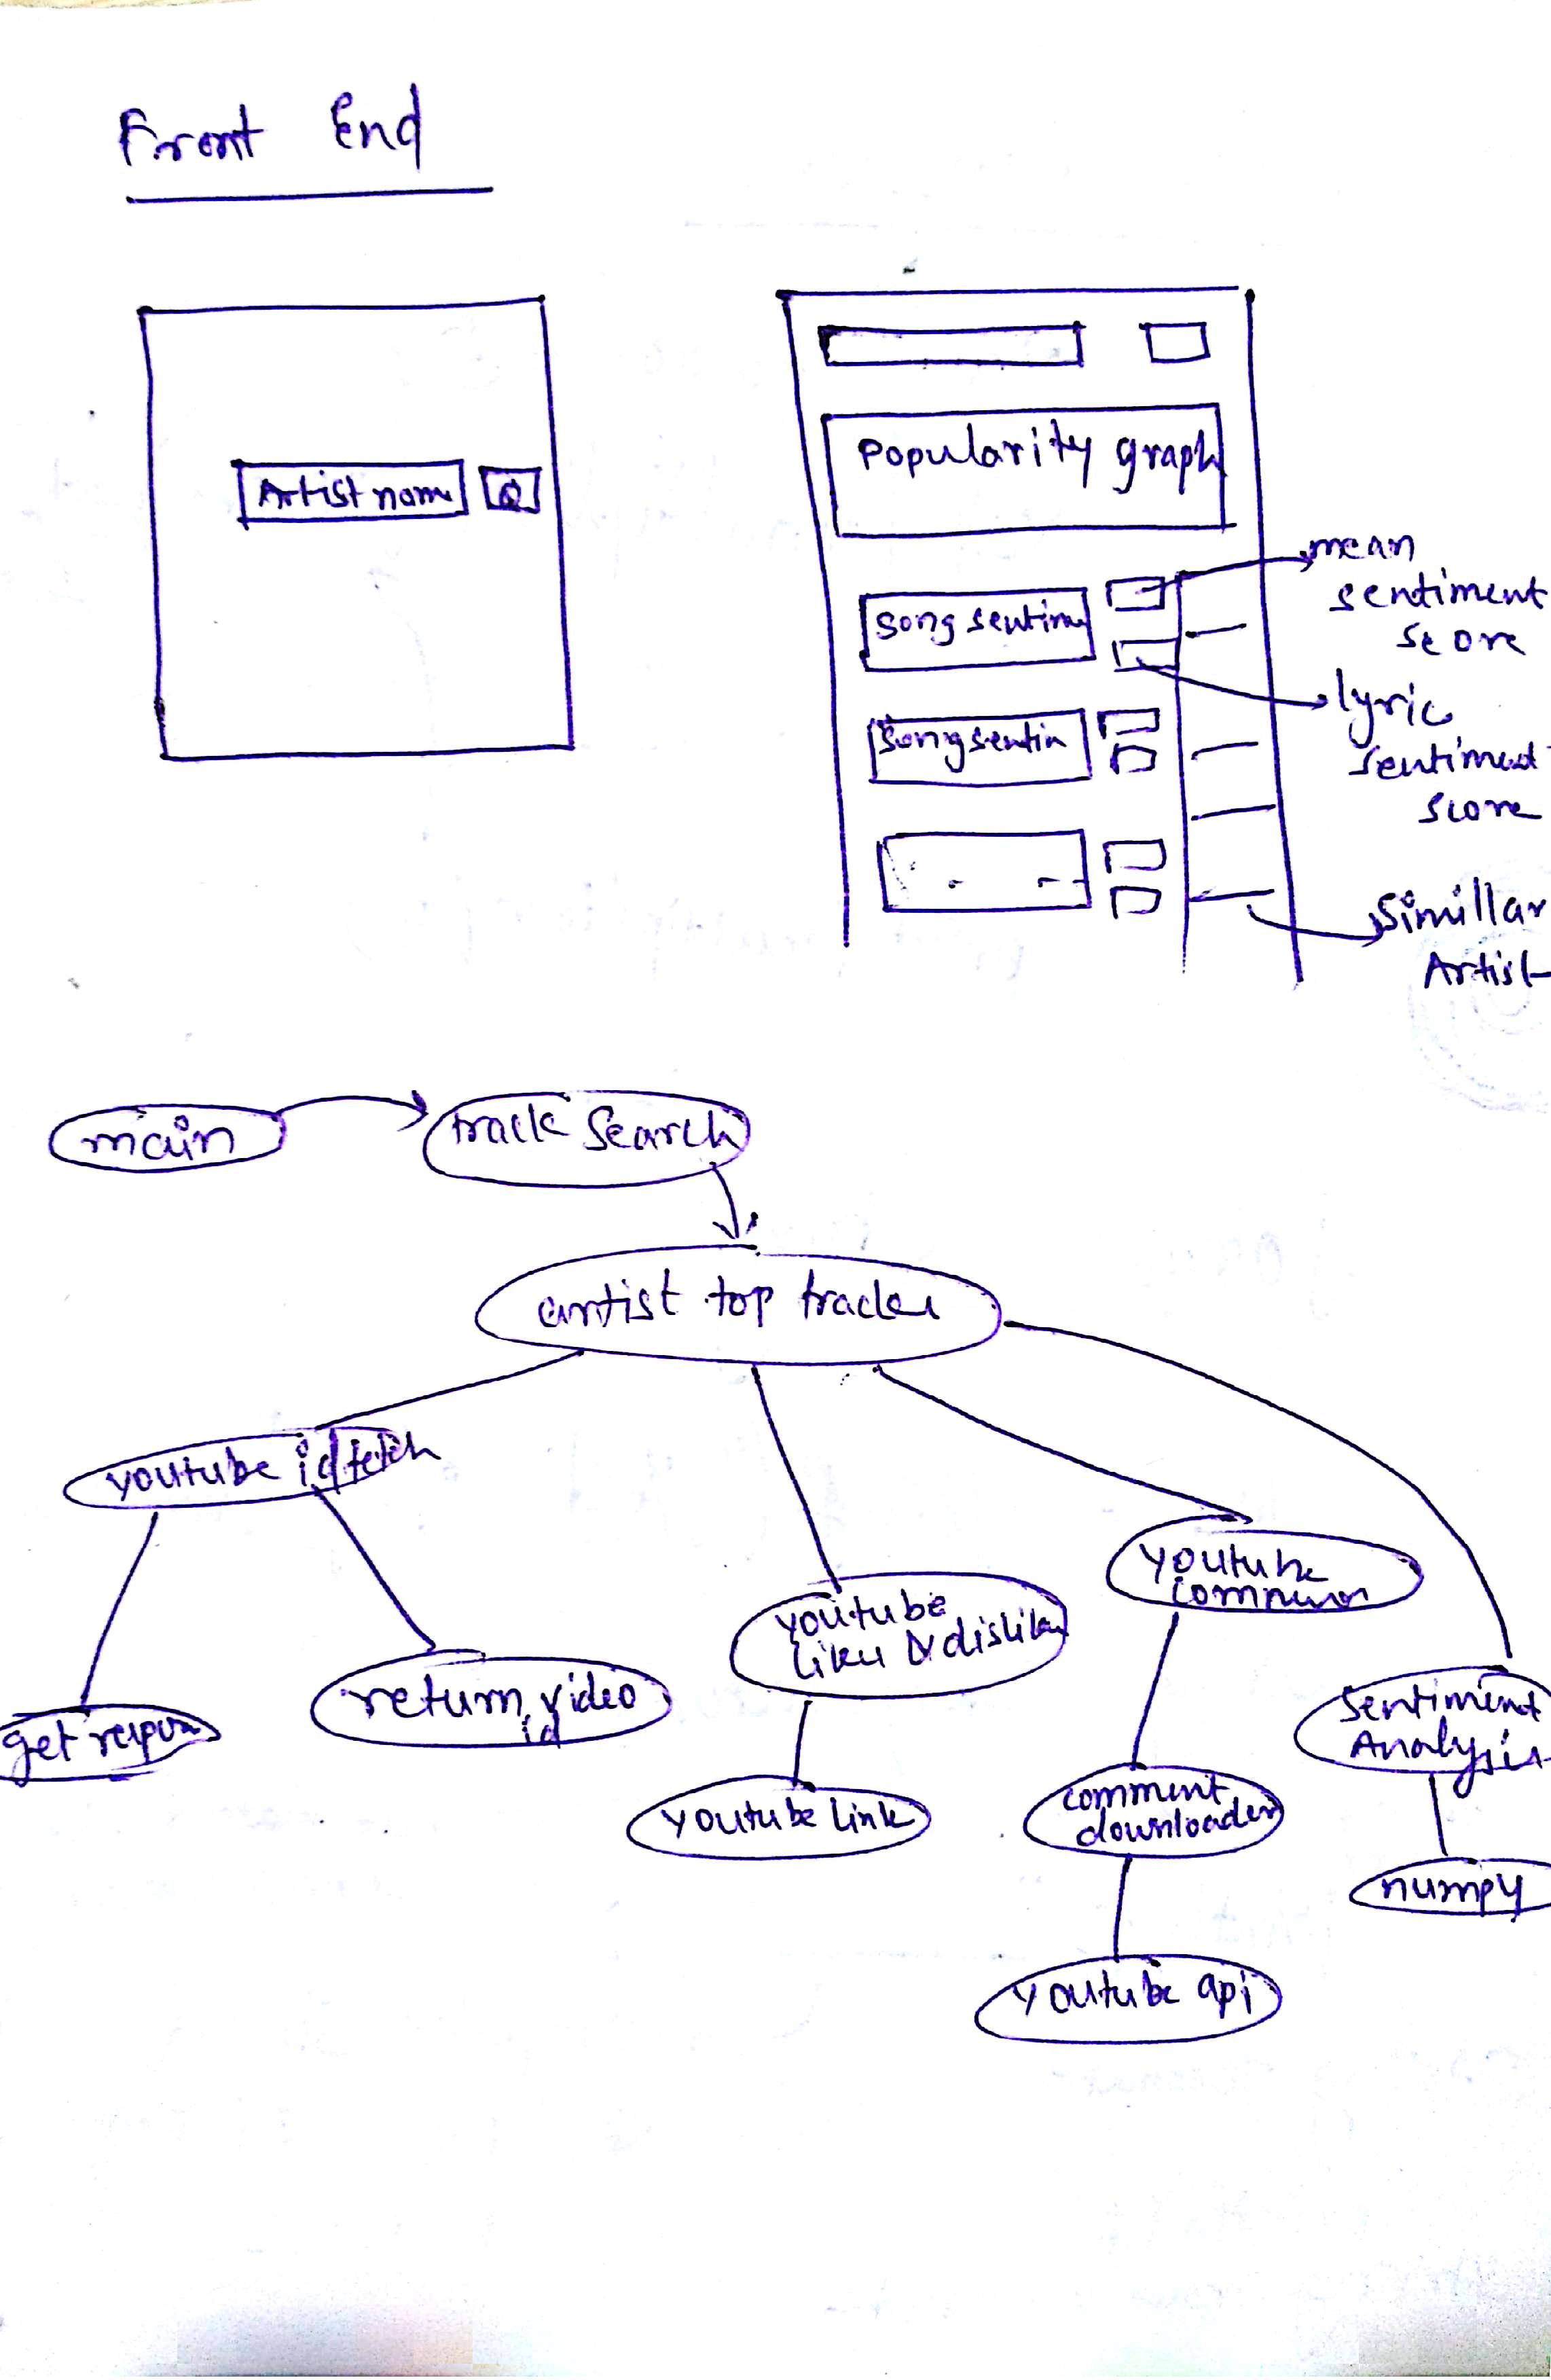 Front End
Artist name
Popularity graph
song sentim
song sentin
mean
sentiment
score
lyric
sentiment
score
Simillar
Artist
main
track Search
artist top tracks
youtube id fetch
get
return video
id
youtube
like & dislike
youtube link
youtube
comment
downloader
youtube api
Sentiment
Analysis
numpy